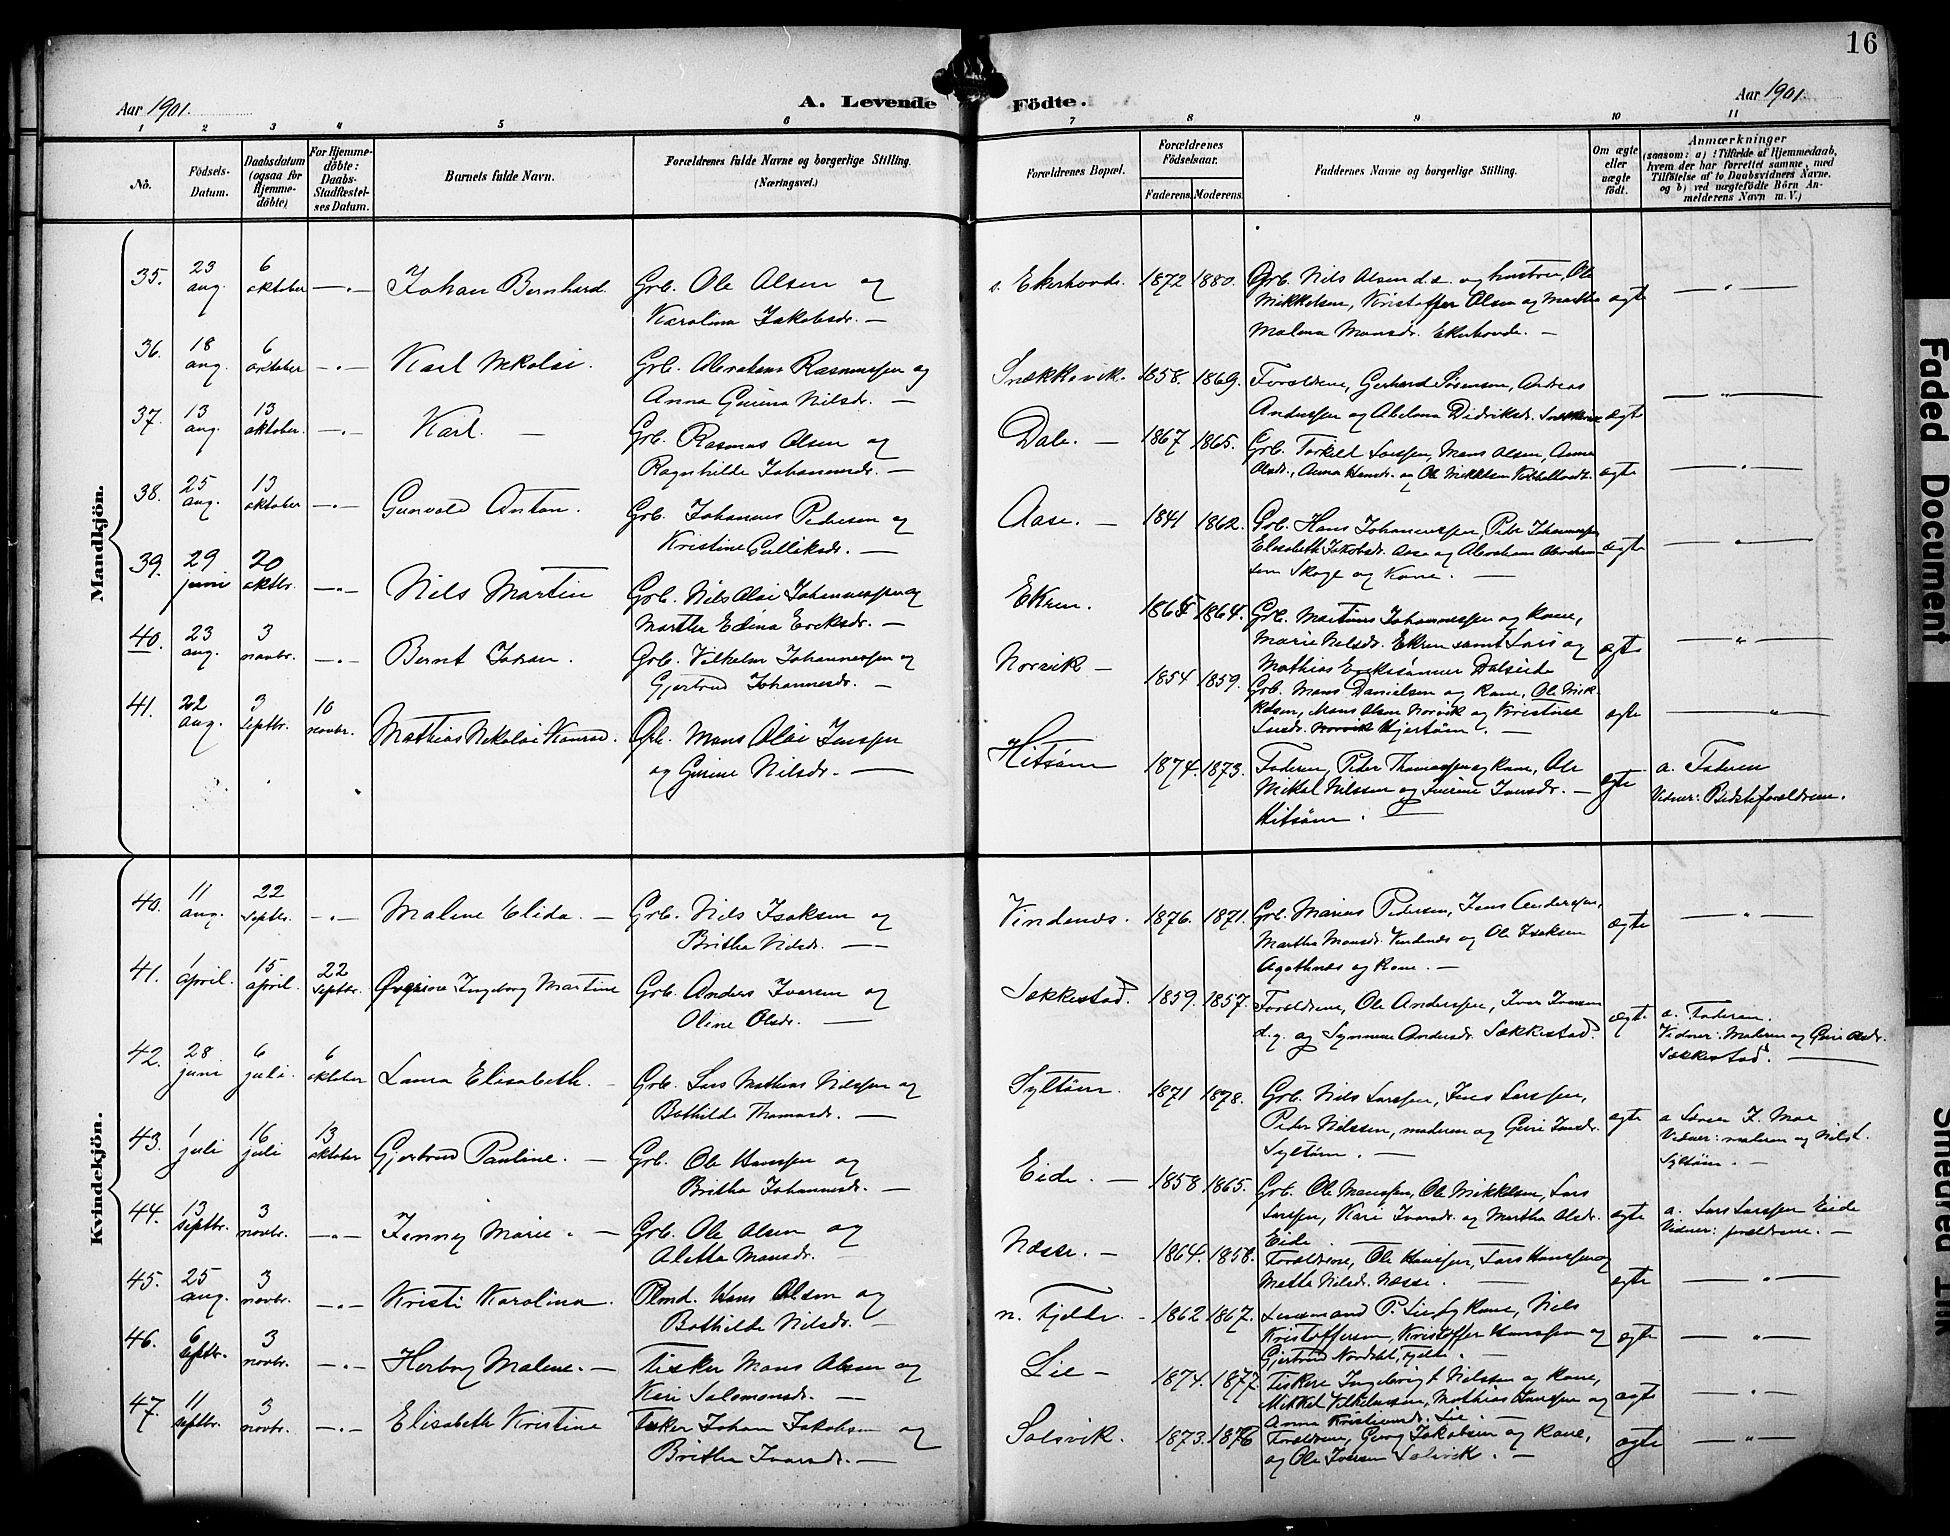 16
Aar 1901.
A. Levende Födte.
Aar 1901.
1 2 3 4 5 6 7 8 9 10 11
No.
Födsels-Datum.
Daabsdatum (ogsaa for Hjemme-döbte)
For Hjemme-döbte: Daabs-Stadfæstel-ses Datum.
Barnets fulde Navn.
Forældrenes fulde Navne og borgerlige Stilling.
(Næringsvei.)
Forældrenes Bopæl.
Forældrenes Födselsaar.
Faderens. Moderens.
Faddernes Navne og borgerlige Stilling.
Om ægte eller uægte födt.
Anmærkninger
(saasom: a) i Tilfælde af Hjemmedaab,
hvem der har forrettet samme, med
Tilföielse af to Daabsvidners Navne,
og b) ved uægtefödte Börn An-
melderens Navn m. V.)
Mandkjön.
35. 23 aug. 6 oktober —„— Johan Bernhard. Grb. Ole Olsen og
Karolina Jakobsdr. —
s. Ekerhovde. 1872 1880. Grb. Nils Olsen d.e. og hustru, Ole
Mikkelsen, Kristoffer Olsen og Martha ægte —„—
Malena Monsdr. Ekerhovde. —
36. 18 aug. 6 oktober —„— Karl Nikolai. Grb. Abraham Rasmussen og
Anna Gurina Nilsdr. —
Snekkevik. 1858. 1869. Forældrene, Gerhard Sörensen, Andreas
Anderssen og Abelona Didriksdr. ægte —„—
37. 13 aug. 13 oktober. —„— Karl. — Grb. Rasmus Olsen og
Ragnhilde Johannesdr. —
Dale. — 1867 1865. Grb. Torkild Larssen, Mons Olsen, Anna
Olsdr., Anna Hansdr. og Ole Mikkelsen ægte —„—
38. 25 aug. 13 oktober —„— Gunvald Anton. Grb. Johannes Pedersen og
Kristine Gulliksdr. —
Aase. — 1841 1862. Grb. Hans Johannessen, Peder Johannessen
Elisabeth Jakobsdr. Aase og Abraham Abraham- ægte —„—
sen Skoge og Kone. —
39. 29 juni 20 oktbr. —„— Nils Martin Grb. Nils Olai Johannessen og
Martha Edina Eriksdr. —
Ekren. 1865 1864. Grb. Martinus Johannessen og kone,
Marie Nilsdr. Ekren samt Lars og ægte —„—
Mathias Erikssönner Dalseide
40. 23 aug. 3 novbr. —„— Bernt Johan. Grb. Vilhelm Johannessen og
Gjertrud Johannesdr. —
Norvik — 1854 1859. Grb. Mons Danielsen og kone, Ole Mik-
kelsen, Mons Olsen Norvik og Kristine ægte —„—
Larsdr. Norvik Hjertöen. —
41. 22 aug. 3 septbr. 10 novbr. Mathias Nikolai Konrad. Grb. Mons Olai Jenssen
og Gurine Nilsdr. —
Hitsöen 1874. 1873. Faderen, Peder Thomassen og kone, Ole
Mikal Nilssen og Sverine Ivarsdr. — ægte a. Faderen
Hitsöen. — Vidner: Bedsteforældrene.
Kvindekjön.
40. 11 aug. 22 septbr. —„— Malene Elida. — Grb. Nils Isaksen og
Britha Nilsdr. —
Vindenes. 1876. 1871. Grb. Marius Pedersen, Jens Anderssen,
Martha Monsdr. Vindenes og Ole Isaksen ægte —„—
Agathnes og kone. —
41. 1 april. 15 april. 22 septbr. Ingeborg Martine Grb. Anders Ivarsen og
Oline Olsdr. —
Sekkestad. 1859. 1857. Forældrene, Ole Anderssen, Ivar Ivarsen
d.y. og Synneve Andersdr. Sækkestad. ægte. a. Faderen.
Vidner: Moderen og Guri Olsdr.
Sækkestad. —
42. 28 juni 6 juli. 6 oktober Laura Elisabeth. — Grb. Lars Mathias Nilssen og
Bothilde Thomasdr. —
Syltöen. 1871 1878. Grb. Nils Larssen, Jens Larssen,
Peder Nilssen, moderen og Guri Jonsdr. ægte a Lærer J. Moe
Syltöen. — Vidner: moderen og Nils L.
Syltöen. —
43. 1 juli 16 juli 13 oktober Gjertrud Pauline. — Grb. Ole Hanssen og
Britha Johannesdr. —
Eide. — 1858 1865. Grb. Ole Monssen, Ole Mikkelsen, Lars
Larssen, Kari Ivarsdr. og Martha Olsdr. ægte a. Lars Larssen Eide
Eide Vidner: forældrene. —
44. 13 septbr. 3 novbr. —„— Jenny Marie. — Grb. Ole Olsen og
Aletta Monsdr.
Nesse. — 1864. 1858. Forældrene, Ole Hanssen, Lars Hanssen og
Metha Nilsdr. Nesse. — ægte —„—
45. 25 aug. 3 novbr. —„— Kristi Karolina. Plmd. Hans Olsen og
Bothilde Nilsdr. —
n. Fjelde. — 1862 1867. Lensmand P. Lie og kone, Nils
Kristoffersen, Kristoffer Hanssen og ægte —„—
Gjertrud Nordahl, Fjelde. —
46. 6 septbr. 3 novbr. —„— Herborg Malene. — Fisker Mons Olsen og
Kari Salomonsdr. —
Lie — 1874. 1877 Fiskere Ingebrigt Nilssen og kone,
Mikkel Vilhelmssen, Mathias Hanssen og ægte —„—
Anna Kristiansdr. Lie. —
47. 11 septbr. 3 novbr. —„— Elisabeth Kristine Fisker Johan Jakobsen og
Britha Ivarsdr. —
Solsvik. 1873. 1876 Forældrene, Georg Jakobsen og kone,
og Ole Iversen Solsvik. — ægte —„—
Faded Document
Smeared Ink